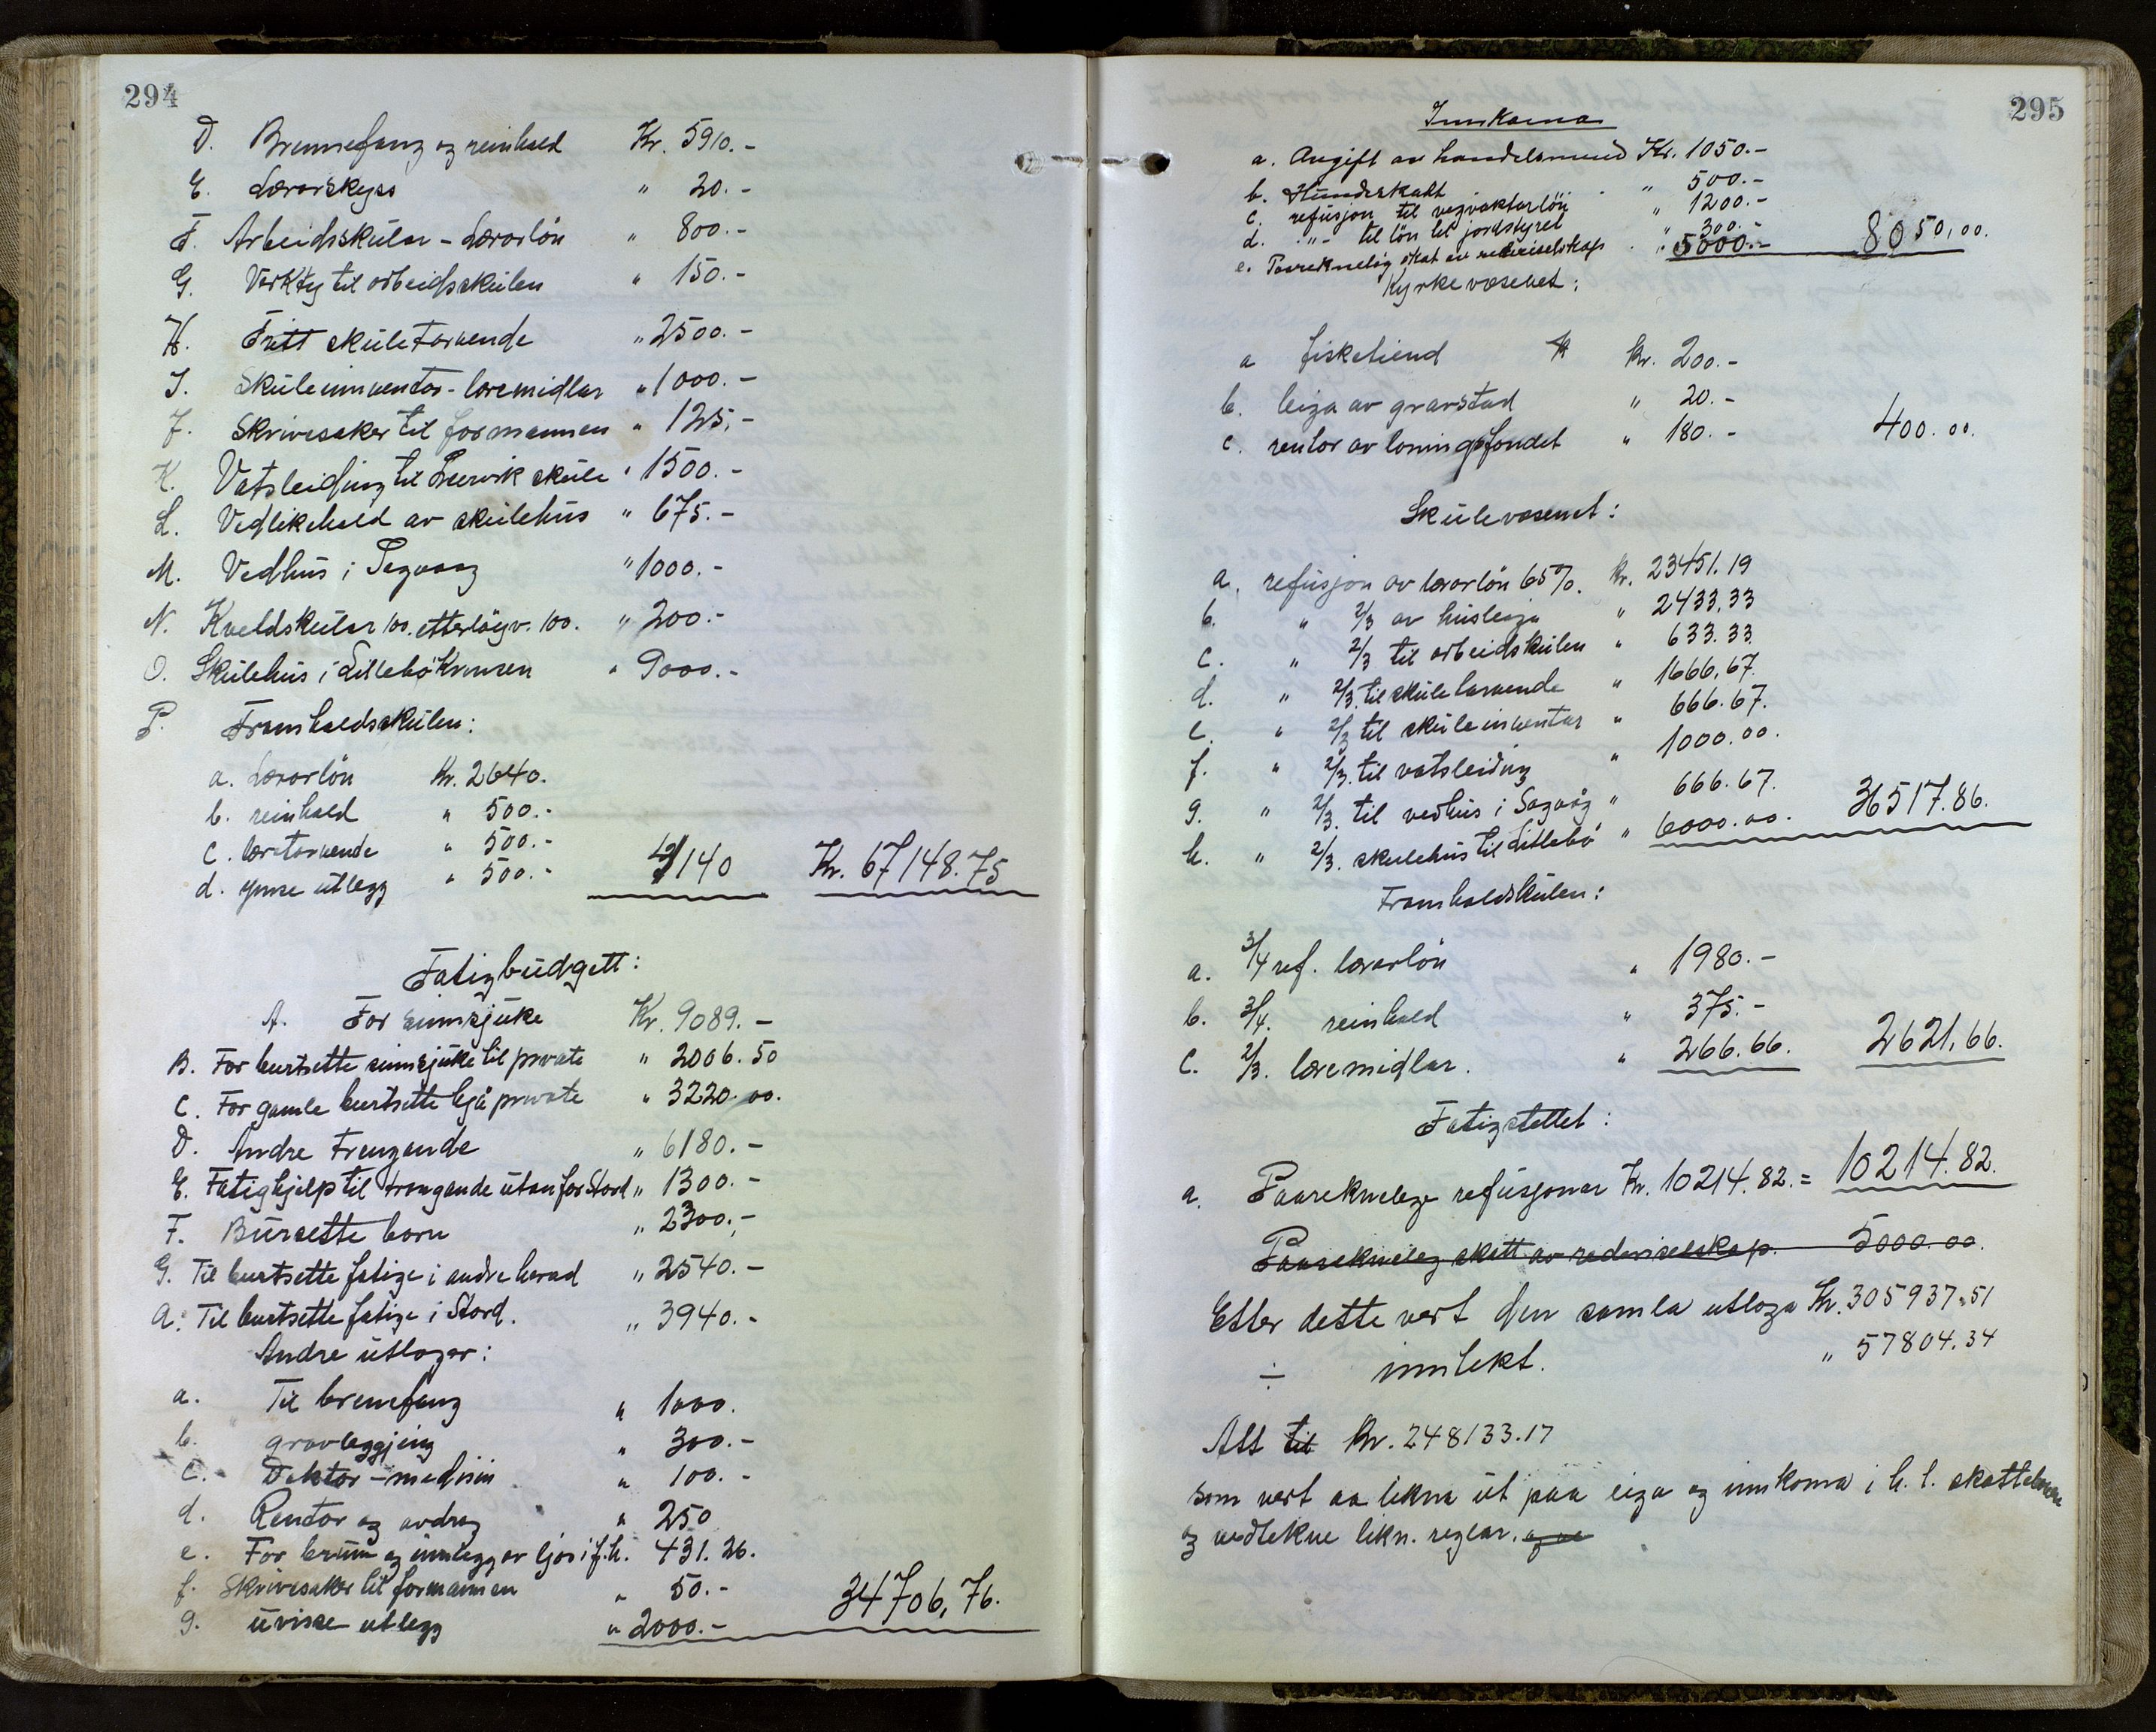 294
D. Brennefang og reinhald Kr. 5910.-
E. Lærarskyss " 20.-
F. Arbeidsskular - Lærarløn " 800.-
G. Verkty til arbeidsskulen " 150.-
H. Fritt skuletarvende " 2500.-
I. Skuleinnventar - læremidlar " 1000.-
J. Skrivesaker til formannen " 125.-
K. Vatsleiding til Leirvik skule " 1500.-
L. Vedlikehald av skulehus " 675.-
M. Vedhus i Sagvaag " 1000.-
N. Kveldskular 100. etterløgv. 100. " 200.-
O. Skulehus i Litlabø Krinsen " 9000.-
P. Framhaldsskulen:
a. Lærarløn Kr. 2640.
b. reinhald " 500.-
c. læretarvende " 500.-
d. ymse utlegg " 500.- 4140 Kr. 67148.75
Fatigbudgett:
A. For sinnsjuke Kr. 9089.-
B. For burtsette sinnsjuke til private " 2006.50
C. For gamle burtsette hjå private " 3220.00.
D. Andre Trengande " 6180.-
E. Fatighjelp til trengande utanfor Stord " 1300.-
F. Bursette born " 2300.-
G. Til burtsette fatige i andre herad " 2540.-
A. Til burtsette fatige i Stord. " 3940.-
Andre utlogor:
a. Til brenefang " 1000.
b. gravleggjing " 300.-
c. Doktor - medisin " 100.-
d. Rentor og avdrag " 250
e. For brunn og innlegg av ljos i f.h. 431.26.
f. Skrivesaker til formannen " 50.-
g. uvisse utlegg " 2000.- 34706,76.
295
Innkoma
a. Avgift av handelsmend Kr. 1050.-
b. Hundeskatt " 500.-
c. refusjon til vegvaktarløn " 1200.-
d. -"- til løn til jordstyret " 300.-
e. Paarekneleg skat av rederiselskap " 5000.- 8050,00.
Kyrkevæsenet:
a fisketiend Kr. 200.-
b. leiga av gravstad " 20.-
c. rentor av løningsfondet " 180.- 400.00.
Skulevæsenet:
a. refusjon av lærarløn 65%. Kr. 23451.19
b. " 2/3 av husleiga " 2433,33
c. " 2/3 til arbeidskulen " 633.33
d. " 2/3. til skuletarvende " 1666,67.
e. " 2/3 til skuleinventar " 666.67.
f. " 2/3. til vatsleiding " 1000.00.
g. " 2/3. til vedhus i Sagvåg " 666.67.
h. " 2/3. skulehus til Litlabø " 6000.00. 36517.86.
Framhaldskulen:
a. 3/4 ref. lærarløn " 1980.-
b. 3/4. reinhald " 375.-
c. 2/3. læremidlar. " 266.66. 2621,66.
Fatigstellet:
a. Paareknelege refusjonar Kr. 10214.82. = 10214.82.
Paarekneleg skatt av rederiselskap. 5000.00.
Etter dette vert den samla utloga Kr. 305937.51
÷ inntekt. " 57804.34
Att til Kr. 248133.17
som vert aa likna ut paa eiga og innkoma i h. t. skattelovene
og vedtekne likn. reglar. og ve